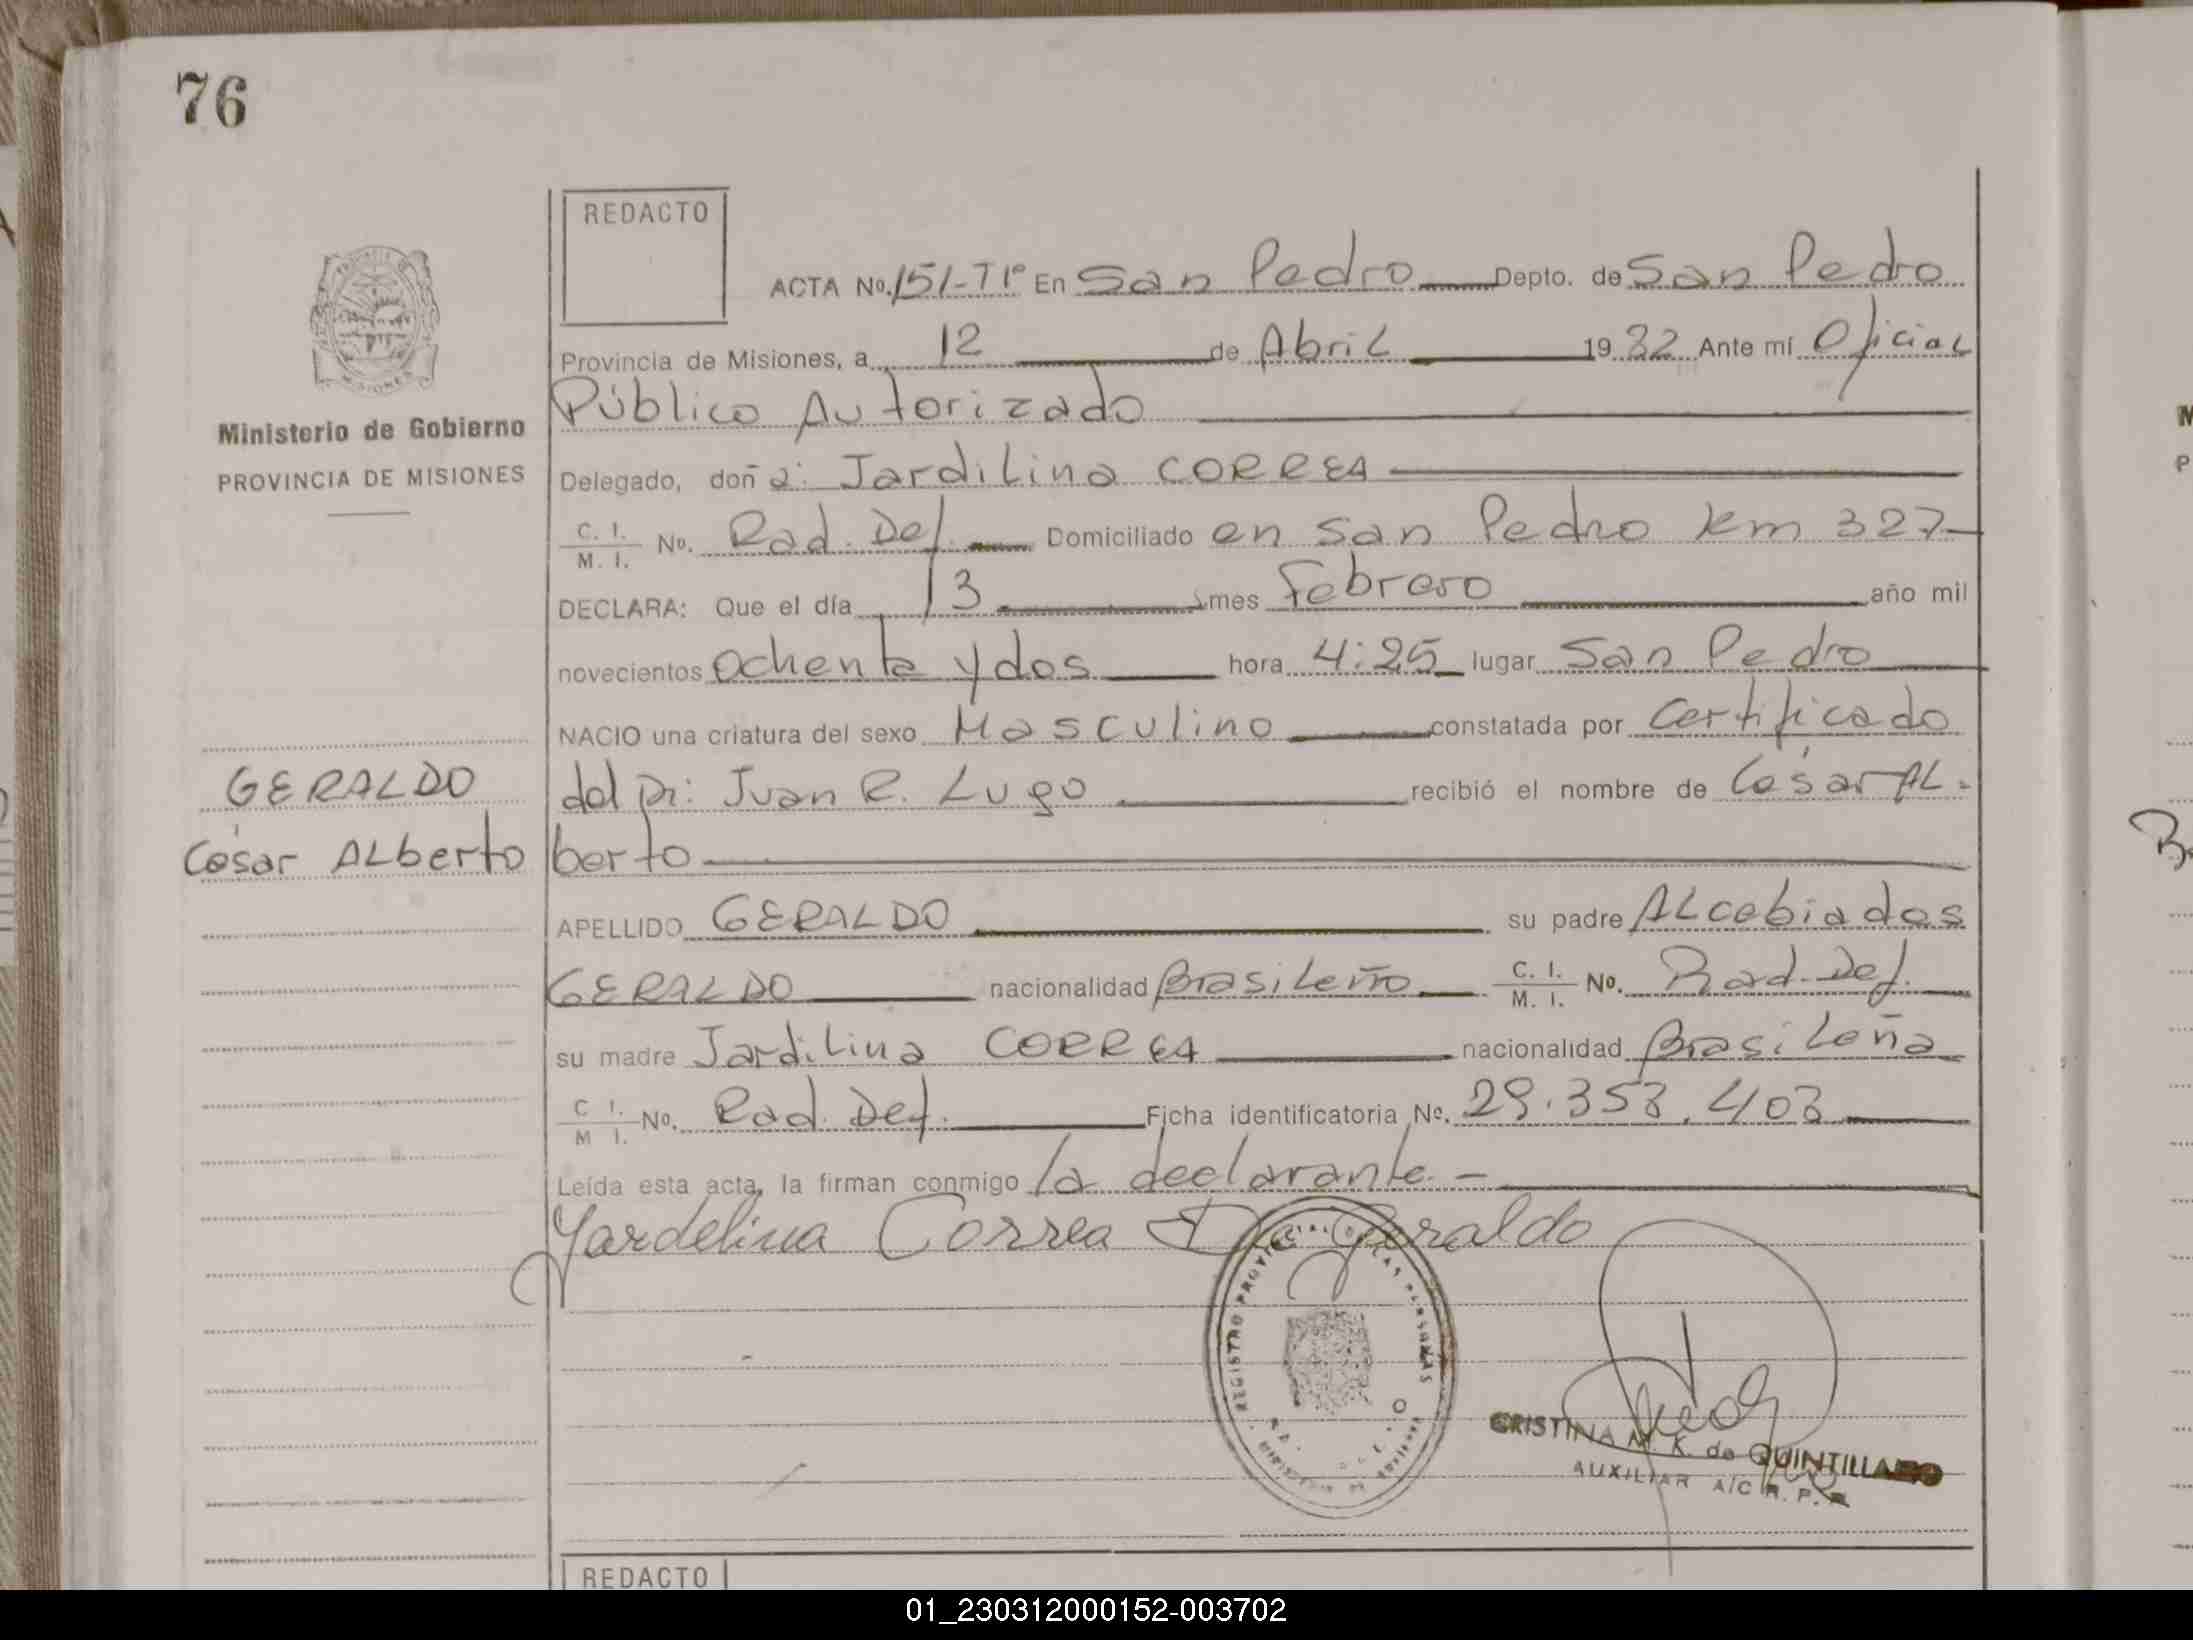 76
REDACTO
ACTA No. 151-T1º En San Pedro Depto. de San Pedro
Provincia de Misiones, a 12 de Abril 1982 Ante mí Oficial
Público Autorizado
Ministerio de Gobierno
PROVINCIA DE MISIONES
Delegado, doña: Jardilina CORREA
C. I. / M. I. No. Rad. Def. Domiciliado en San Pedro Km 327
DECLARA: Que el día 13 mes Febrero año mil
novecientos ochenta y dos hora 4:25 lugar San Pedro
NACIO una criatura del sexo Masculino constatada por Certificado
GERALDO
César ALberto
del Dr: Juan R. Lugo recibió el nombre de César AL-
berto
APELLIDO GERALDO su padre ALcebiades
GERALDO nacionalidad Brasileño C. I. / M. I. No. Rad. Def.
su madre Jardilina CORREA nacionalidad Brasileña
C I. / M I. No. Rad. Def. Ficha identificatoria No. 29.353.403
Leída esta acta, la firman conmigo la declarante.-
Yardelina Correa De Geraldo
REGISTRO PROVINCIAL DE LAS PERSONAS
CRISTINA M. K. de QUINTILLANO
AUXILIAR A/C R. P.
REDACTO
01_230312000152-003702